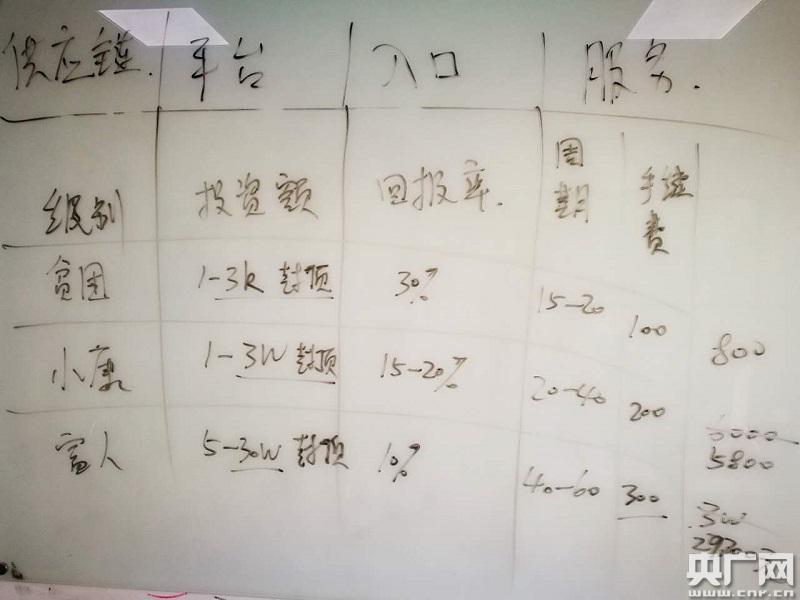 供应链. 平台 入口 服务.
级别 投资额 回报率. 周期 手续费
贫困 1-3k 封顶 30% 15-20 100 800
小康 1-3W 封顶 15-20% 20-40 200 5800
富人 5-30W 封顶 10% 40-60 300 3W
央广网
www.cnr.cn